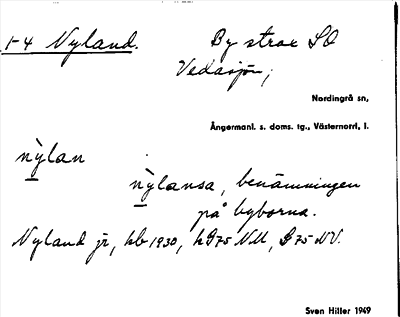 1-4 Nyland. By strax SO
Vedasjön;
Nordingrå sn,
Ångermanl. s. doms. tg., Västernorrl. l.
nỳlan
nỳlansa, benämningen
på byborna.
Nyland jr, kb 1930, h975 NM, 975 NV.
Sven Hiller 1949